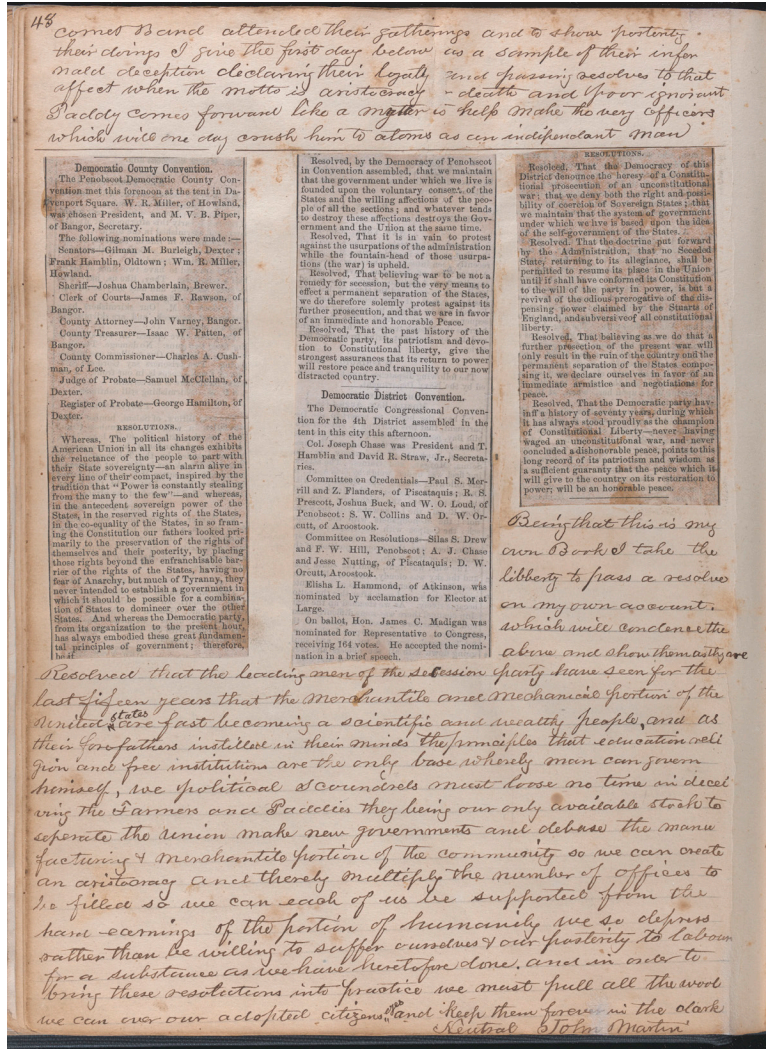 48
comet Band attended their gatherings and to show portenty
their doings I give the first day below as a sample of their infer
nald deception declaring their loyalty and passing resolves to that
affect when the motto is aristocracy - death and poor ignorant
Paddy comes forward like a is help make the very officers
which will one day crush him to atoms as an indipendant man
Democratic County Convention.
The Penobscot Democratic County Con-
vention met this forenoon at the tent in Da-
venport Square. W. R. Miller, of Howland,
was chosen President, and M. V. B. Piper,
of Bangor, Secretary.
The following nominations were made:—
Senators—Gilman M. Burleigh, Dexter;
Frank Hamblin, Oldtown; Wm. R. Miller,
Howland.
Sheriff—Joshua Chamberlain, Brewer.
Clerk of Courts—James F. Rawson, of
Bangor.
County Attorney—John Varney, Bangor.
County Treasurer—Isaac W. Patten, of
Bangor.
County Commissioner—Charles A. Cush-
man, of Lee.
Judge of Probate—Samuel McClellan, of
Dexter.
Register of Probate—George Hamilton, of
Dexter.
RESOLUTIONS.
Whereas, The political history of the
American Union in all its changes exhibits
the reluctance of the people to part with
their State sovereignty—an alarm alive in
every line of their compact, inspired by the
tradition that "Power is constantly stealing
from the many to the few"—and whereas,
in the antecedent sovereign power of the
States, in the reserved rights of the States,
in the co-equality of the States, in so fram-
ing the Constitution our fathers looked pri-
marily to the preservation of the rights of
themselves and their posterity, by placing
those rights beyond the enfranchisable bar-
rier of the rights of the States, having no
fear of Anarchy, but much of Tyranny, they
never intended to establish a government in
which it should be possible for a combina-
tion of States to domineer over the other
States. And whereas the Democratic party,
from its organization to the present hour,
has always embodied these great fundamen-
tal principles of government; therefore,
be it
Resolved, by the Democracy of Penobscot
in Convention assembled, that we maintain
that the government under which we live is
founded upon the voluntary consent of the
States and the willing affections of the peo-
ple of all the sections; and whatever tends
to destroy these affections destroys the Gov-
ernment and the Union at the same time.
Resolved, That it is in vain to protest
against the usurpations of the administration
while the fountain-head of those usurpa-
tions (the war) is upheld.
Resolved, That believing war to be not a
remedy for secession, but the very means to
effect a permanent separation of the States,
we do therefore solemly protest against its
further prosecution, and that we are in favor
of an immediate and honorable Peace.
Resolved, That the past history of the
Democratic party, its patriotism and devo-
tion to Constitutional liberty, give the
strongest assurances that its return to power
will restore peace and tranquility to our now
distracted country.
Democratic District Convention.
The Democratic Congressional Conven-
tion for the 4th District assembled in the
tent in this city this afternoon.
Col. Joseph Chase was President and T.
Hamblin and David R. Straw, Jr., Secreta-
ries.
Committee on Credentials—Paul S. Mer-
rill and Z. Flanders, of Piscataquis; R. S.
Prescott, Joshua Buck, and W. O. Loud, of
Penobscot: S. W. Collins and D. W. Or-
cutt, of Aroostook.
Committee on Resolutions—Silas S. Drew
and F. W. Hill, Penobscot; A. J. Chase
and Jesse Nutting, of Piscataquis; D. W.
Orcutt, Aroostook.
Elisha L. Hammond, of Atkinson, was
nominated by acclamation for Elector at
Large.
On ballot, Hon. James C. Madigan was
nominated for Representative to Congress,
receiving 164 votes. He accepted the nomi-
nation in a brief speech.
RESOLUTIONS.
Resolced, That the Democracy of this
District denounce the heresy of a Constitu-
tional prosecution of an unconstitutional
war; that we deny both the right and possi-
bility of coercion of Sovereign States; that
we maintain that the system of government
under which we live is based upon the idea
of the self-government of the States.
Resolved, That the doctrine put forward
by the Administration, that no Seceded
State, returning to its allegiance, shall be
permitted to resume its place in the Union
until it shall have confirmed its Constitution
to the will of the party in power, is but a
revival of the odious prerogative of the dis-
pensing power claimed by the Stuarts of
England, and subversive of all constitutional
liberty.
Resolved, That believing as we do that a
further prosection of the present war will
only result in the ruin of the country and the
permanent separation of the States compo-
sing it, we declare ourselves in favor of an
immediate armistice and negotiations for
peace.
Resolved, That the Democratic party hav-
ing a history of seventy years, during which
it has always stood proudly as the champion
of Constitutional Liberty—never having
waged an unconstitutional war, and never
concluded a dishonorable peace, points to this
long record of its patriotism and wisdom as
a sufficient guaranty that the peace which it
will give to the country on its restoration to
power; will be an honorable peace.
Being that this is my
own Book I take the
libberty to pass a resolve
on my own account.
which will condence the
above and show them as they are
Resolved that the leading men of the secession party have seen for the
last fifeen years that the Merchantile and mechanical portion of the
United states are fast becoming a scientific and wealthy people, and as
their forefathers instilled in their minds the principles that education reli
gion and free institutions are the only base whereby man can govern
himself, we political scoundrels must loose no time in decei
ving the Farmers and Paddies they being our only available stock to
seperate the union make new governments and debase the manu
facturing & merchantile portion of the community so we can create
an aristocracy and thereby multiply the number of offices to
be filled so we can each of us be supported from the
hard earnings of the portion of humanity we so depress
rather than be willing to suffer ourselves & our posterity to labour
for a substance as we have heretofore done. and in order to
bring these resolutions into practice we must pull all the wool
we can over our adopted citizens eyes and keep them forever in the dark
Neutral John Martin